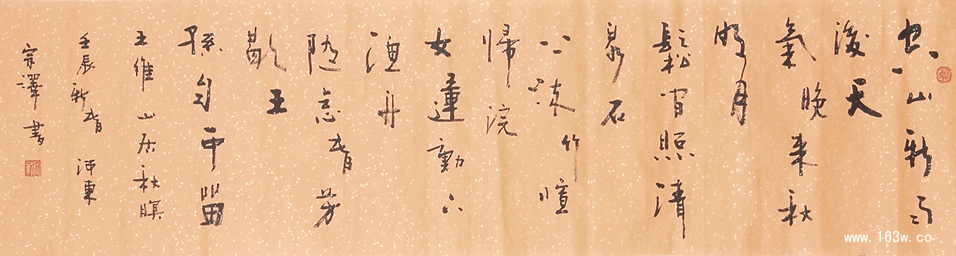 空山新雨
後天
氣晚来秋
明月
鬆间照清
泉石
上流竹喧
歸浣
女蓮動下
漁舟
随意春芳
歇王
孫自可留
王維山居秋暝
壬辰新春河東
宗澤書
www.163w.co-